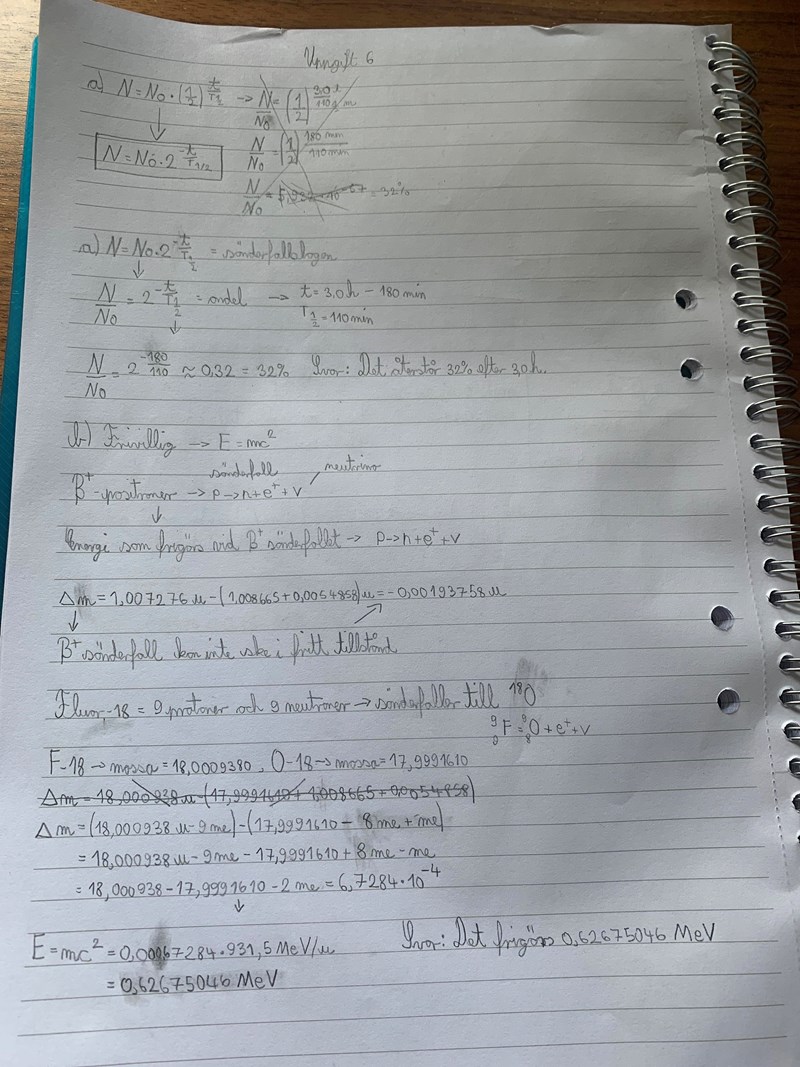 Uppgift 6
a) N = N₀ · (1/2)^(t/T½) → N/N₀ = (1/2)^(3,0h/110 min)
↓
N = N₀ · 2^(-t/T1/2)
N/N₀ = (1/2)^(180 min/110 min)
N/N₀ = = 32%
a) N = N₀ · 2^(-t/T½) = sönderfallslagen
↓
N/N₀ = 2^(-t/T½) = andel → t = 3,0 h - 180 min
T½ = 110 min
↓
N/N₀ = 2^(-180/110) ≈ 0,32 = 32% Svar: Det återstår 32% efter 3,0 h.
b) Frivillig → E = mc²
B⁺-positroner → sönderfall p → n + e⁺ + v neutrino
↓
Energi som frigörs vid B⁺ sönderfallet → p → n + e⁺ + v
Δm = 1,007276 u - (1,008665 + 0,0054858) u = -0,00193758 u
↓
B⁺ sönderfall kan inte ske i fritt tillstånd
Fluor-18 = 9 protoner och 9 neutroner → sönderfaller till ¹⁸O
⁹₉F = ⁹₈O + e⁺ + v
F-18 → massa = 18,0009380, O-18 → massa = 17,9991610
Δm = 18,000938 u - (17,9991610 + 1,008665 + 0,0054858)
Δm = (18,000938 u - 9 me) - (17,9991610 - 8 me + me)
= 18,000938 u - 9 me - 17,9991610 + 8 me - me
= 18,000938 - 17,9991610 - 2 me = 6,7284 · 10⁻⁴
↓
E = mc² = 0,00067284 · 931,5 MeV/u Svar: Det frigörs 0,62675046 MeV
= 0,62675046 MeV